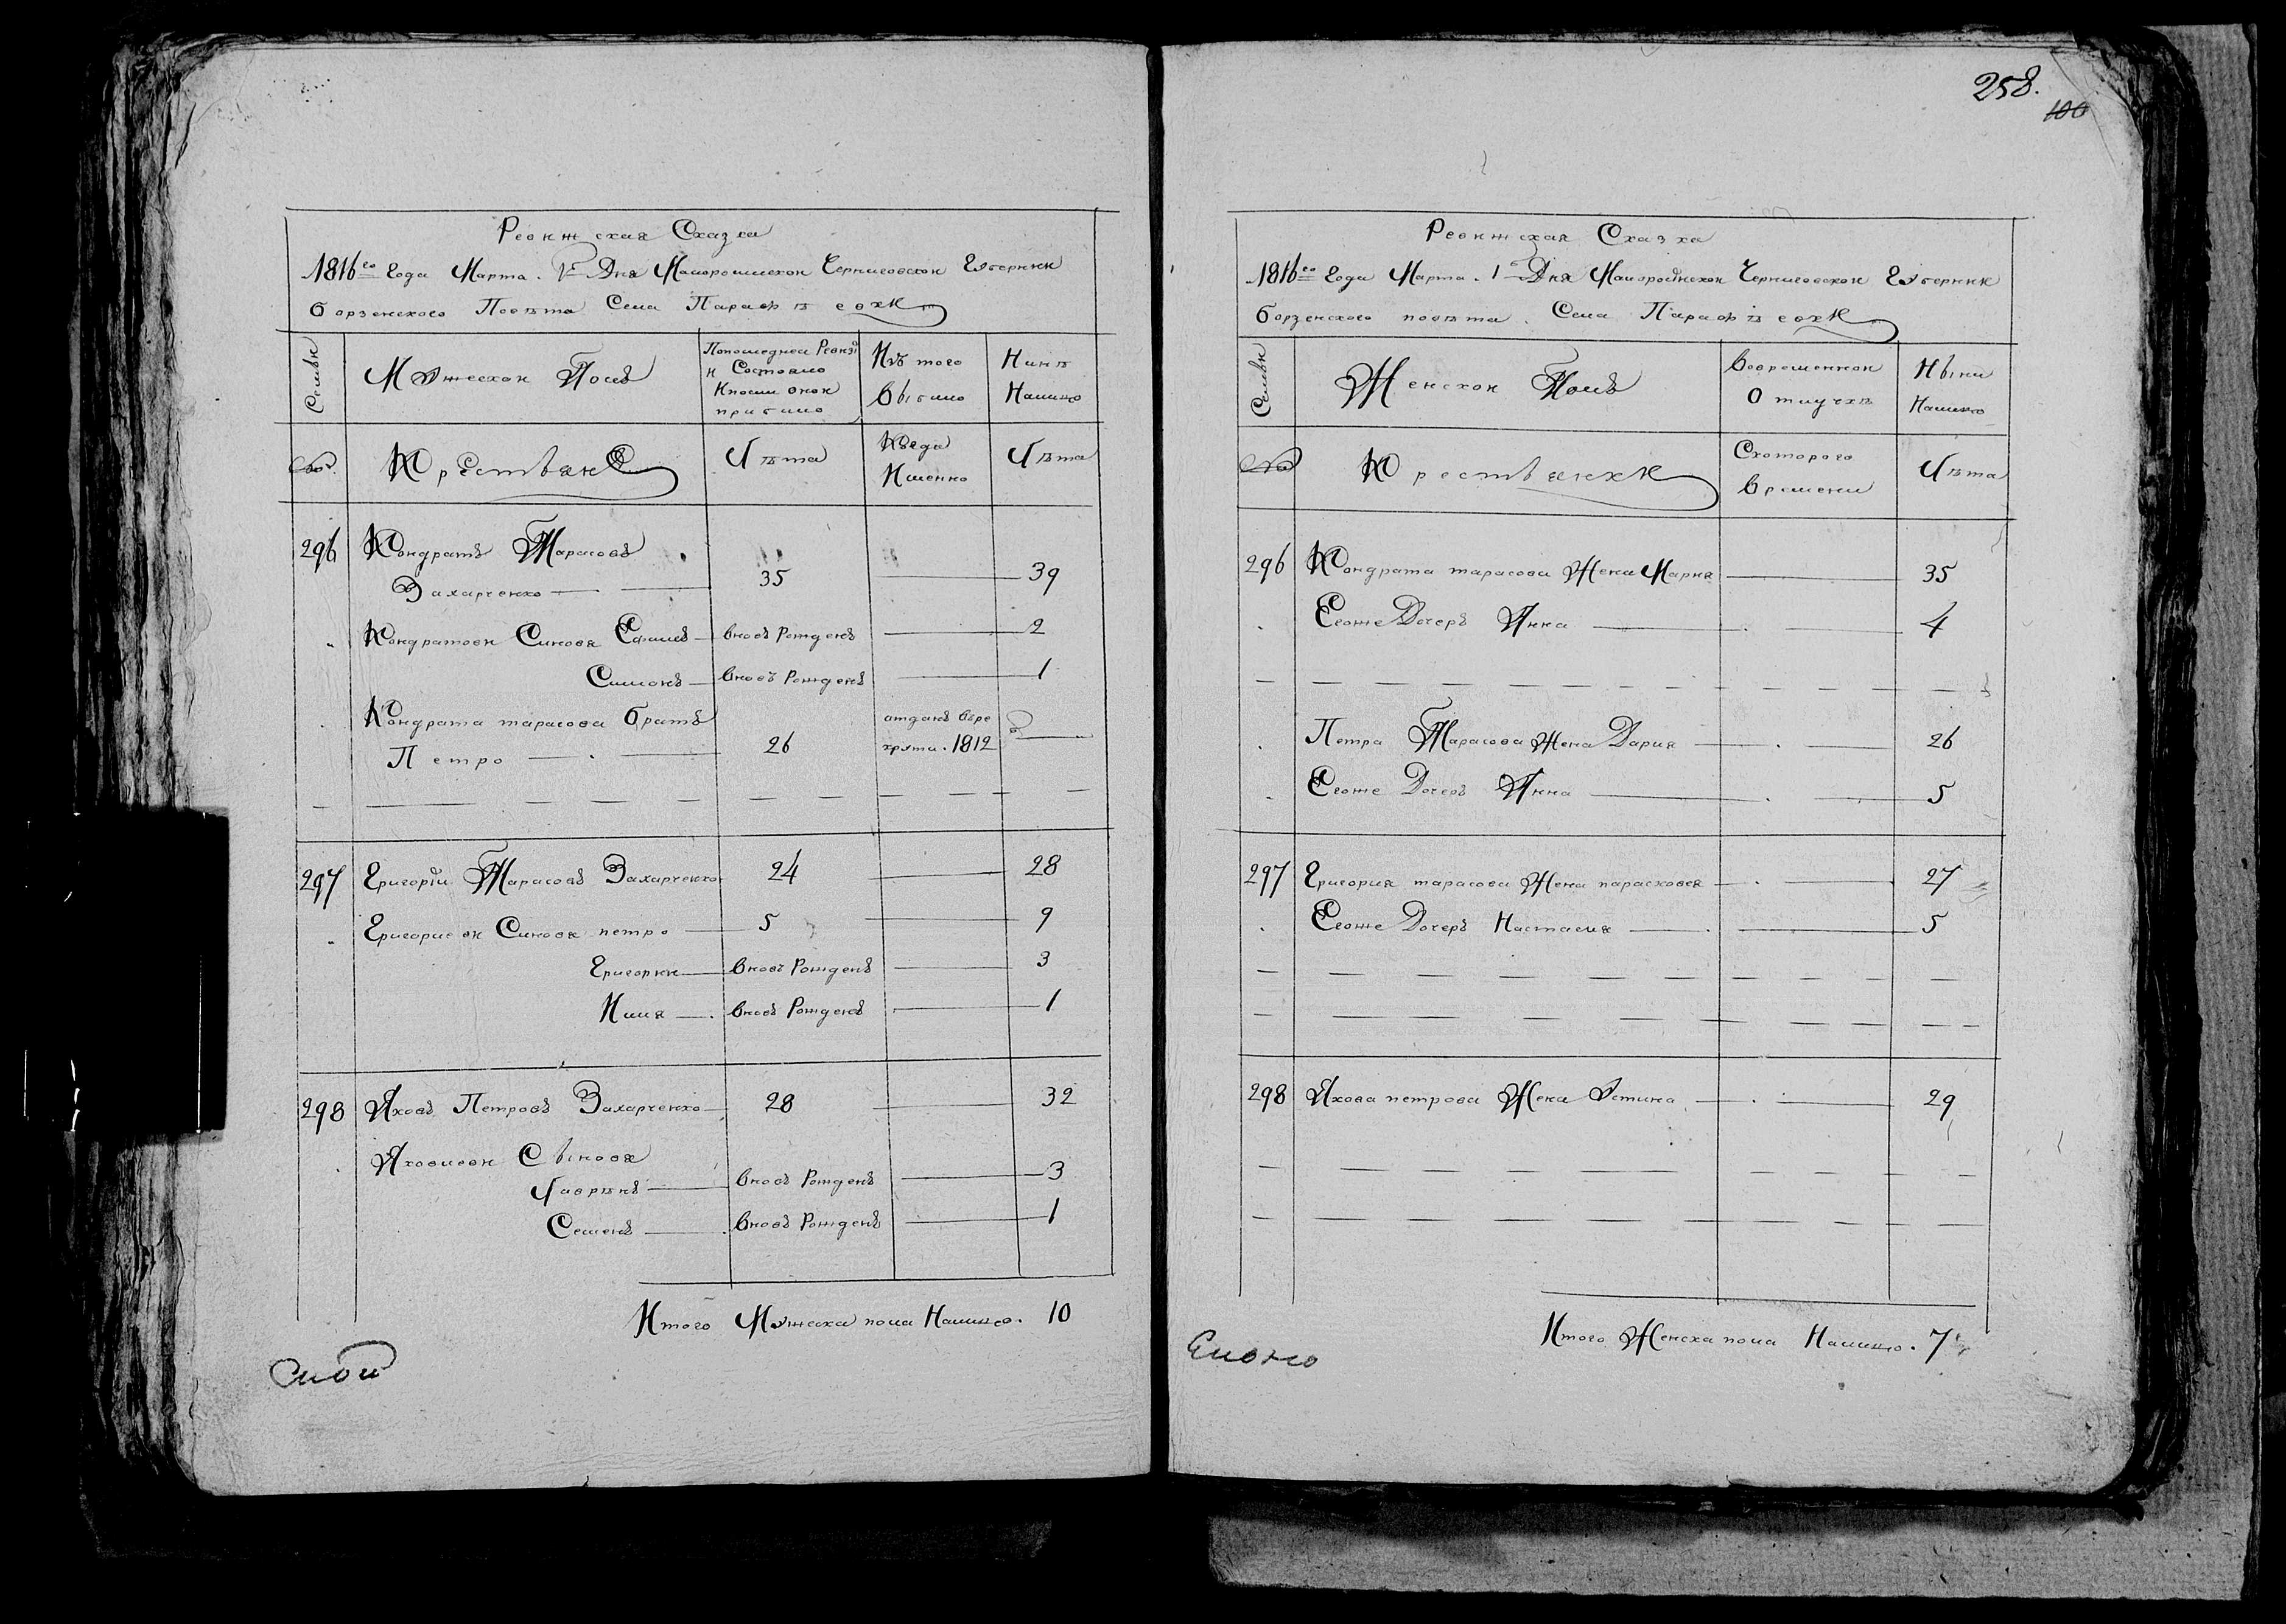 Ревижская Сказка
1816го Года Марта 1го Дня Малоросийской Черниговской Губернии
борзенского Повѣта Села Парафѣевки
Семьи
Мужеской Полъ
Попоследней Ревизі
и Состояло
Ипосли оной
прибило
Изъ того
Выбило
Нинѣ
Налицо
№
Крестьяне
Лѣта
Когда
Именно
Лѣта
296 Кондратъ Тарасовъ
Захарченко 35 39
Кондратови Синовя Ефимъ вновъ Рожденъ 2
Симонъ вновъ Рожденъ 1
Кондрата тарасова братъ
Петро 26 отданъ врекрути 1812
297 Григорій Тарасовъ Захарченко 24 28
Григориеви Синовя петро 5 9
Григорий вновъ Рожденъ 3
Илия вновъ Рожденъ 1
298 Яковъ Петровъ Захарченко 28 32
Яковлеви Сыновя
Лаврѣнъ вновъ Рожденъ 3
Семенъ вновъ Рожденъ 1
Итого Мужеска пола Налицо. 10
258.
100
Ревижская Сказка
1816го Года Марта 1го Дня Малоросійской Черниговской Губернии
борзенского повѣта Села Парафѣевки
Семьи
Женской Полъ
Вовременной
Отлучкѣ
Ныни
Налицо
№
Крестьянки
Скоторого
Времени
Лѣта
296 Кондрата тарасова Жена Мария 35
Егоже Дочеръ Анна 4
Петра Тарасова Жена Дария 26
Егоже Дочеръ Анна 5
297 Григория тарасова Жена парасковея 27
Егоже Дочеръ Настасия 5
298 Якова петрова Жена Устина 29
Итого Женска пола Налицо. 7